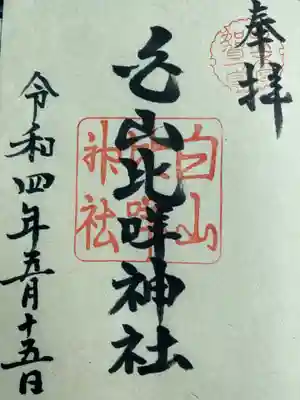 奉拝
白山比咩神社
白山
比咩
神社
令和四年五月十五日